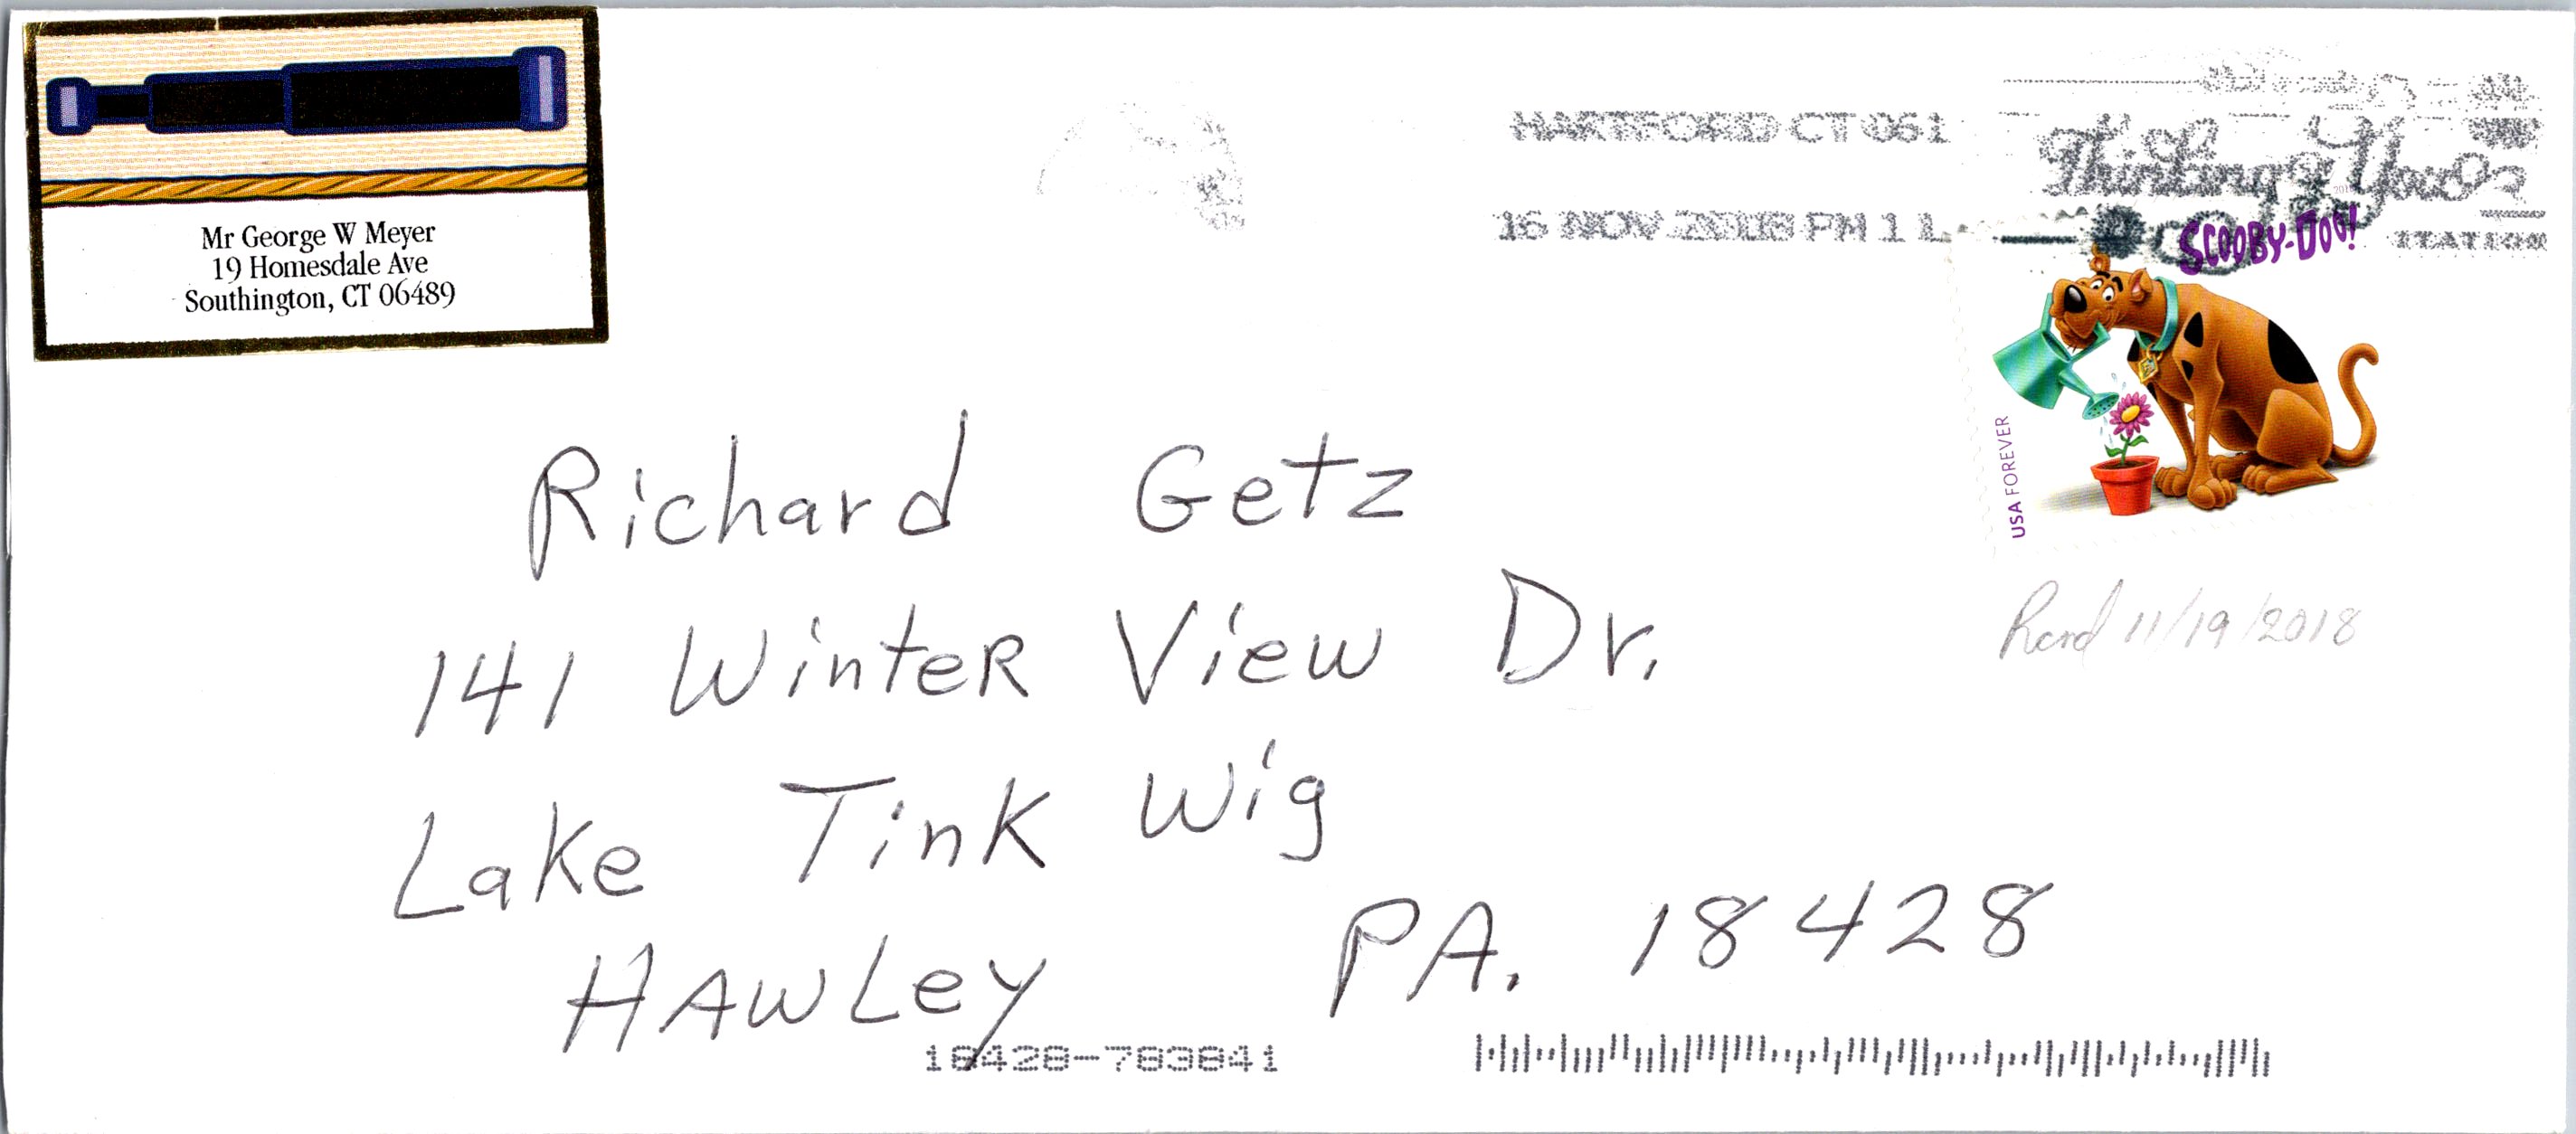 Mr George W Meyer
19 Homesdale Ave
Southington, CT 06489
HARTFORD CT 061
16 NOV 2018 PM 1 L
Thinking of You
SCOOBY-DOO!
USA FOREVER
Rcrd 11/19/2018
Richard Getz
141 Winter View Dr.
Lake Tink Wig
HAWLey PA. 18428
18428-783841